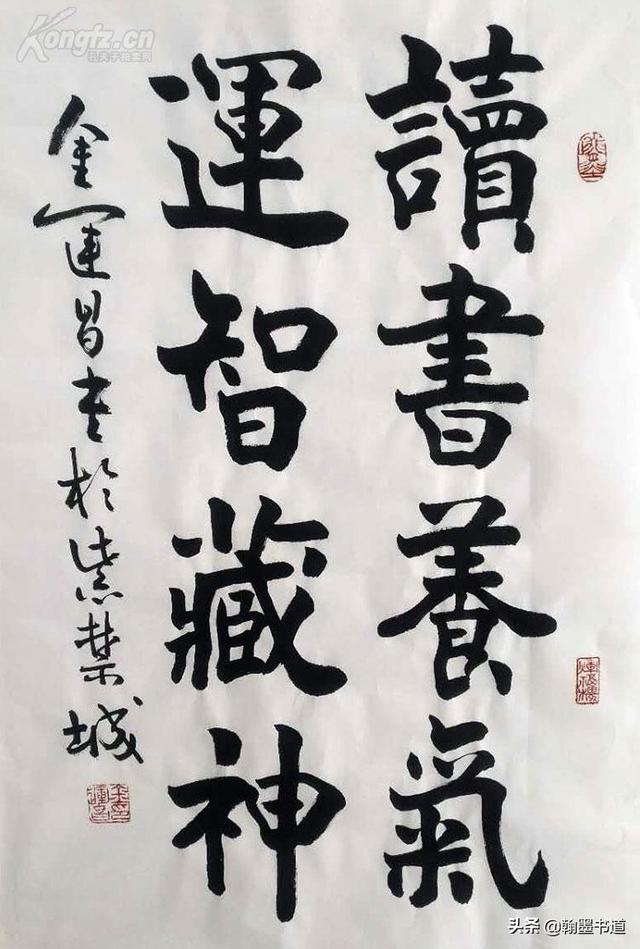 讀書養氣
運智藏神
金運昌書於紫禁城
Kongfz.cn
孔夫子拍卖网
头条 @翰墨书道